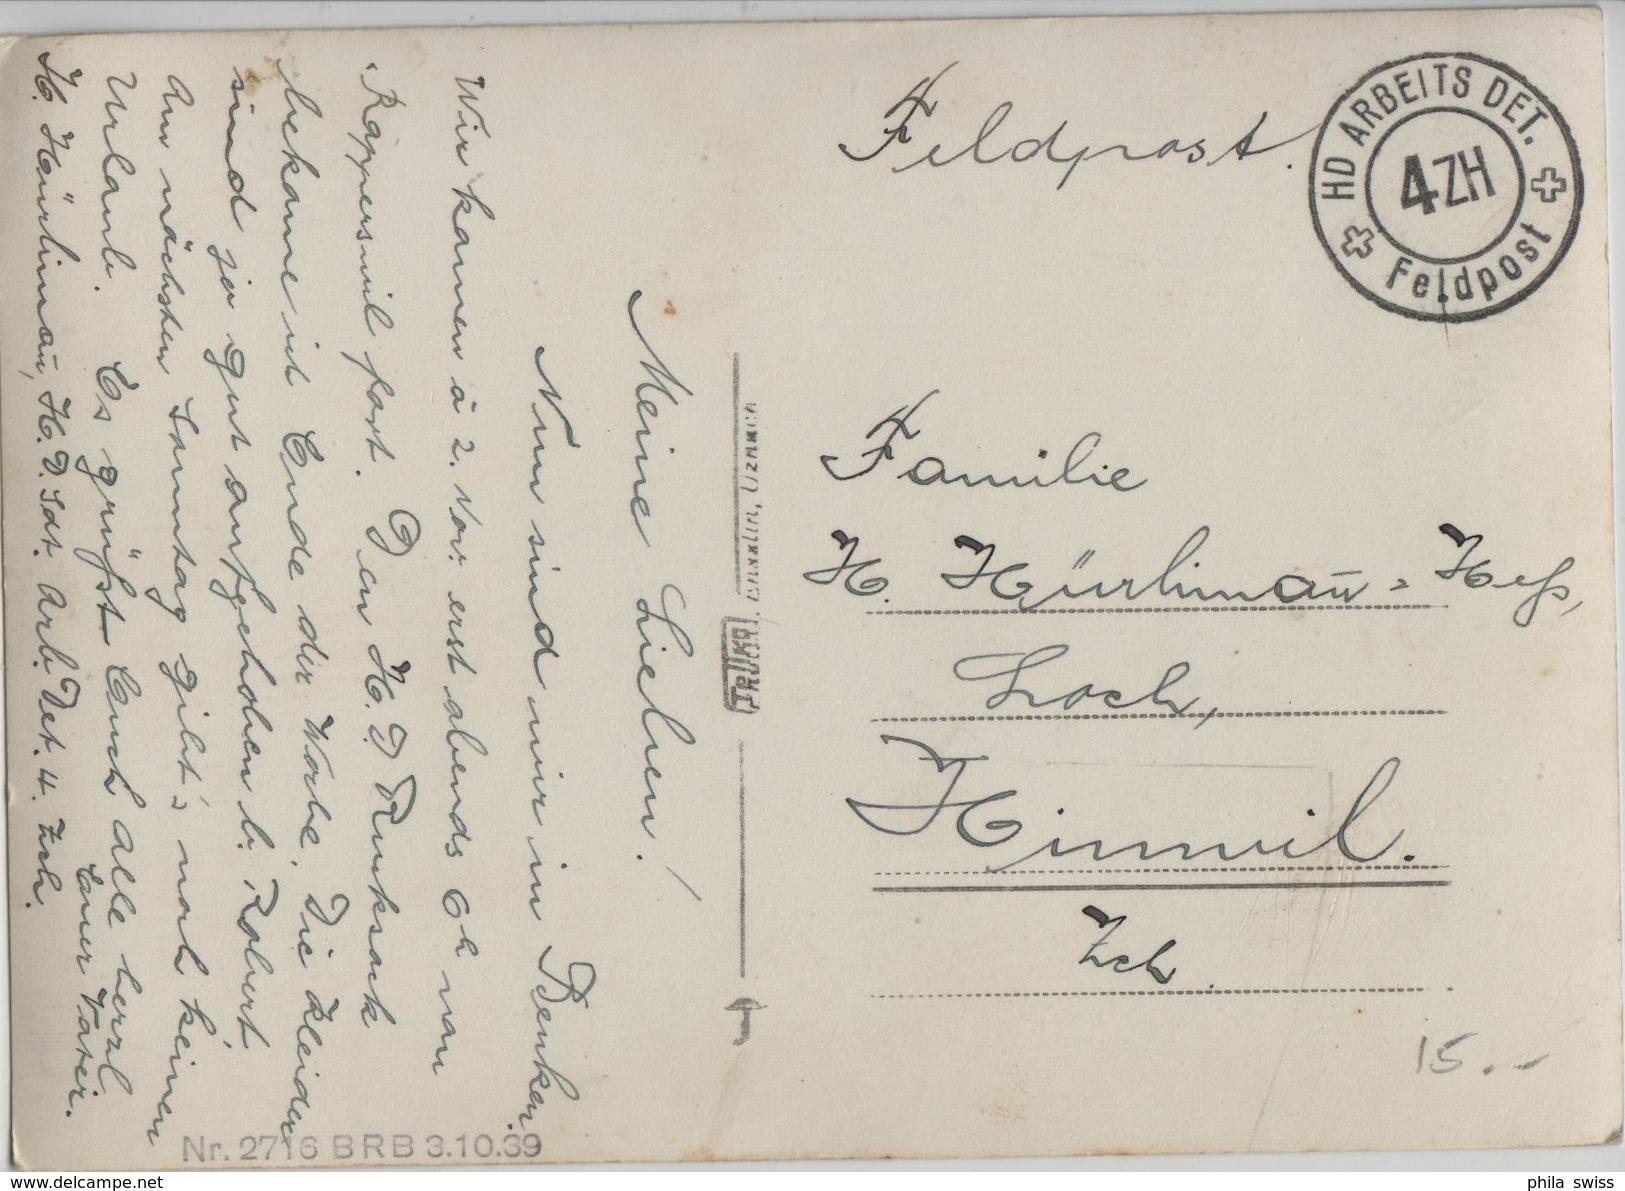 Meine Lieben!
Nun sind wir in Benken.
Wir kamen à 2. Nov. erst abends 6h von
Rapperswil fort. Den H.D Rucksack
bekame ich Ende der Woche. Die Kleider
sind ja gut aufgehoben b. Robert.
Am nächsten Samstag gibt's noch keinen
Urlaub. Es grüßt Euch alle herzl.
Euer Vater.
H. Hürlimañ, H.D. Sdt. Arb. Det. 4. Zch.
Nr. 2716 BRB 3.10.39
Feldpost.
HD ARBEITS DET.
4 ZH
Feldpost
Familie
H. Hürlimañ = Heß,
Loch,
Hinwil.
Zch.
15.-
phila swiss